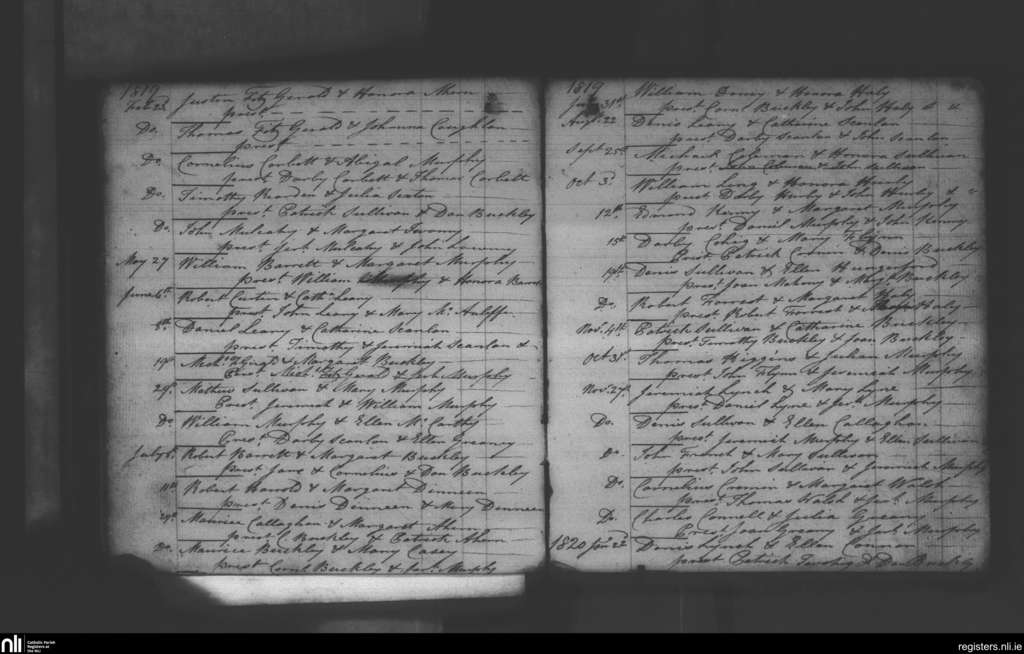 1819
Feb 23 Justin Fitz Gerald & Honora Ahern
prest
Do. Thomas Fitz Gerald & Johanna Coughlan
prest
Do Cornelius Corbett & Abigal Murphy
prest Darby Corbett & Thomas Corbett
Do. Timothy Reardon & Julia
prest. Patrick Sullivan & Dan Buckley
Do. John Mulcahy & Margaret Twomy
prest Mulcahy & John
May 27 William Barrett & Margaret Murphy
prest William & Honora Barrett
June 6th Robert Curtin & Cath. Leary
prest John Leary & Mary Mc Auliffe
8th Daniel Leary & Catharine Scanlon
prest. Timothy & Jeremiah Scanlon &
19th Mich. & Margaret Buckley
Prest Mich. Fitz Gerald & Murphy
29th. Mathew Sullivan & Mary Murphy
Prest. Jeremiah & William Murphy
Do William Murphy & Ellen Mc Carthy
Prest. Darby Scanlon & Ellen Greaney
July Robert Barrett & Margaret Buckley
prest Jane & Cornelius & Dan Buckley
11th Robert Harrold & Margaret Dinneen
prest Denis Dinneen & Mary Dinneen
Maurice Callaghan & Margaret Ahern
prest C Buckley & Patrick Ahern
Do. Maurice Buckley & Mary Casey
prest Corns Buckley & Murphy
1819
31st William & Honora Haly
prest Corns Buckley & John Haly
Augt. 22 Denis Leary & Catharine Scanlon
prest Darby Scanlon & John Scanlon
Sept 25th Michael Coleman & Honora Sullivan
prest. John Coleman & John Sullivan
Oct 3. William Long & Honora Hurly
prest Darby Hurly & John Hurly
12th Edmond Kenny & Margaret Murphy
prest Daniel Murphy & John Kenny
15th Darby & Mary Flynn
Prest Patrick & Denis Buckley
19th. Denis Sullivan & Ellen
prest. Joan Mahony & Buckley
Do. Robert Forrest & Margaret
prest Robert Forrest & Haly
Novr. 4th Patrick Sullivan & Catharine Buckley
prest Timothy Buckley & Joan Buckley
Oct 31st. Thomas Higgins & Julian Murphy
prest. John Flynn & Jeremiah Murphy
Novr. 27. Jeremiah Lynch & Mary Lyne
prest. Daniel Lyne & Jer. Murphy
Do. Denis Sullivan & Ellen Callaghan
prest. Jeremiah Murphy & Ellen Sullivan
Do John French & Mary Sullivan
prest. John Sullivan & Jeremiah Murphy
Do. Cornelius & Margaret Walsh
prest Thomas Walsh & Jer. Murphy
Do. Charles Connell & Julia
Prest Joan & Murphy
1820 Jan. Denis Lynch & Ellen
prest Patrick & Danl Buckly
nli
Catholic Parish
Registers at
the NLI
registers.nli.ie